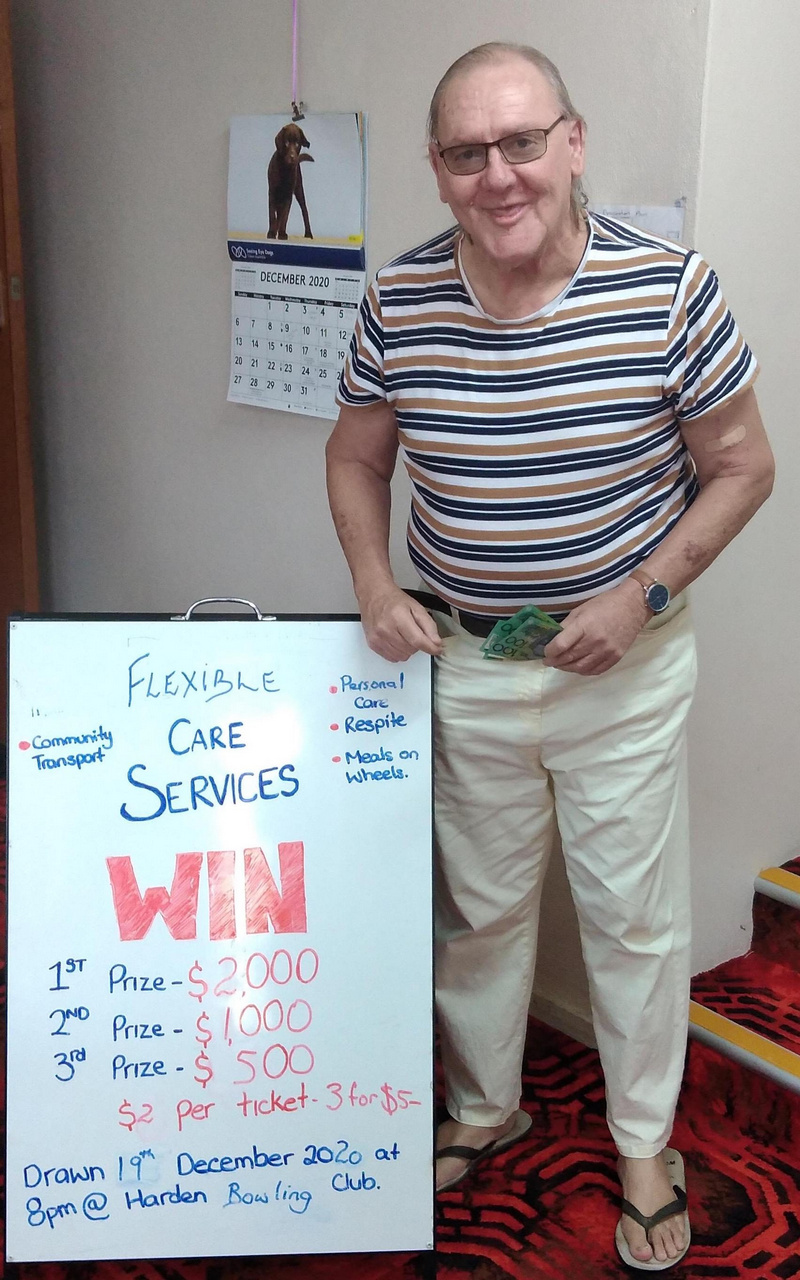 Seeing Eye Dogs
DECEMBER 2020
Sunday Monday Tuesday Wednesday Thursday Friday Saturday
1 2 3 4 5
6 7 8 9 10 11 12
13 14 15 16 17 18 19
20 21 22 23 24 25
27 28 29 30 31
100
FLEXIBLE
CARE
SERVICES
• Community
Transport
• Personal
Care
• Respite
• Meals on
Wheels.
WIN
1ST Prize - $2,000
2ND Prize - $1,000
3rd Prize - $ 500
$2 per ticket - 3 for $5-
Drawn 19th December 2020 at
8pm @ Harden Bowling Club.